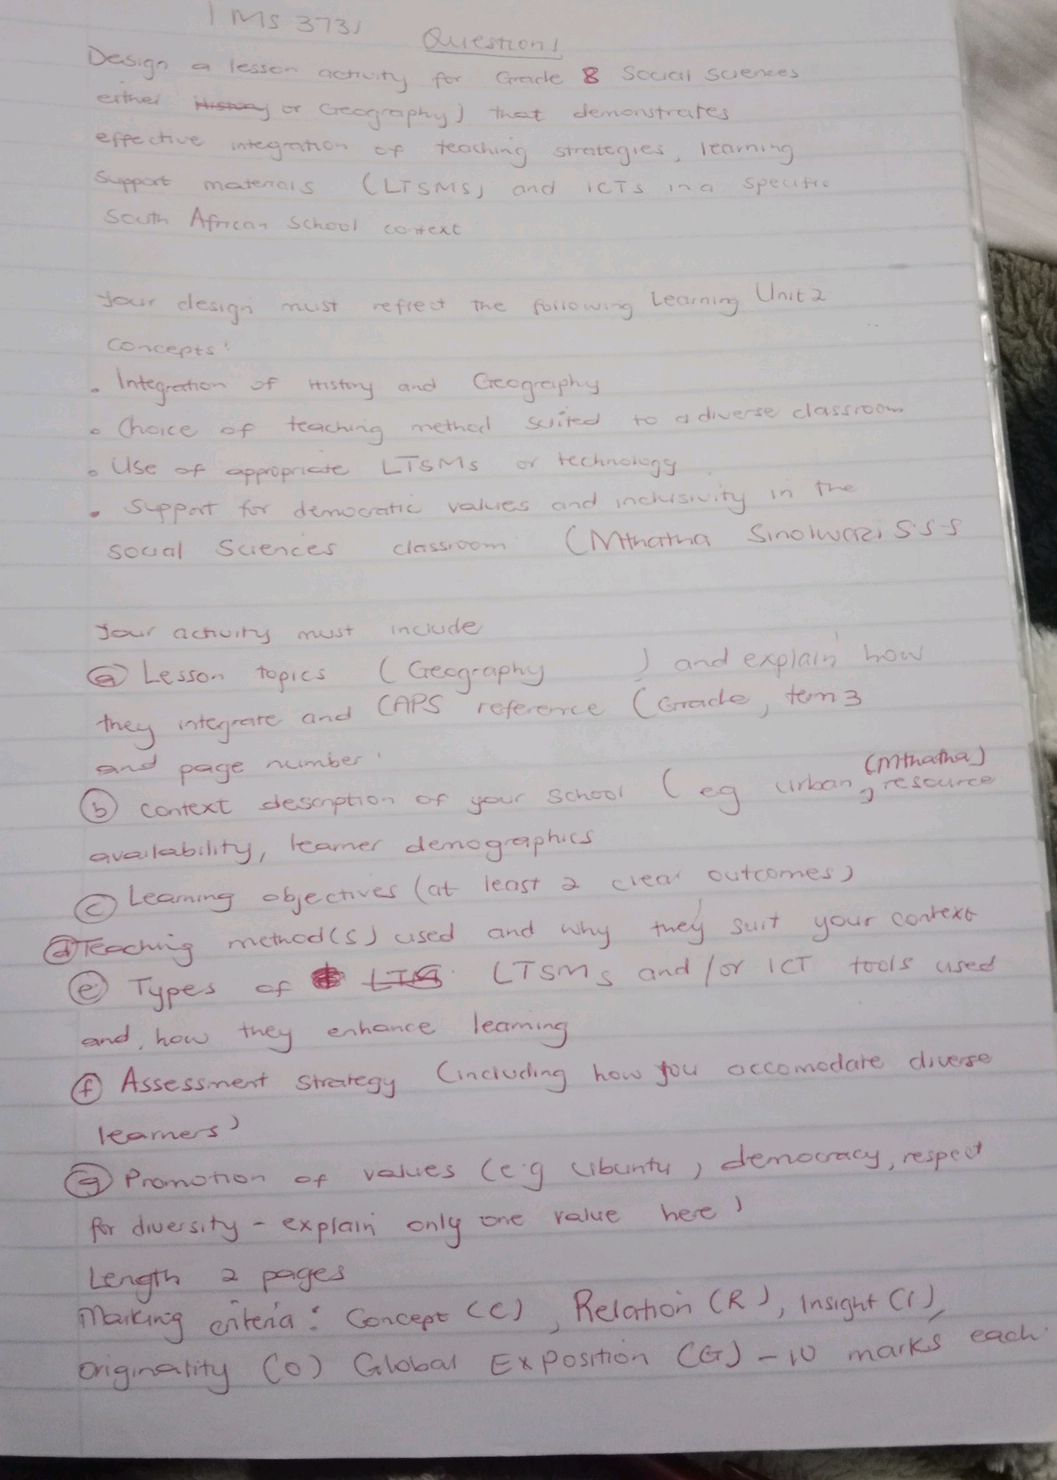 1 MS 3731
Question 1
Design a lesson activity for Grade 8 Social Sciences
either History or Geography) that demonstrates
effective integration of teaching strategies, learning
support materials (LTSMS) and ICTs in a specific
South African School context
Your design must reflect the following Learning Unit 2
Concepts:
• Integration of History and Geography
• Choice of teaching method suited to a diverse classroom
• Use of appropriate LTSMs or technology
• Support for democratic values and inclusivity in the
Social Sciences classroom (Mthatha Sinolwazi S.S.S
Your activity must include
(a) Lesson topics (Geography ) and explain how
they integrate and CAPS reference (Grade, term 3
and page number
(b) context description of your school (eg urban (Mthatha), resource
availability, learner demographics
(c) Learning objectives (at least 2 clear outcomes)
(d) Teaching method(s) used and why they suit your context
(e) Types of LTSMs and/or ICT tools used
and, how they enhance learning
(f) Assessment strategy (including how you accomodate diverse
learners)
(g) Promotion of values (e.g Ubuntu, democracy, respect
for diversity - explain only one value here)
Length 2 pages
Marking criteria: Concept (C), Relation (R), Insight (I),
Originality (O) Global Exposition (G) - 10 marks each